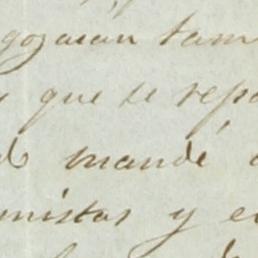 gozaran tam
que se repa
mandé
nistas y e